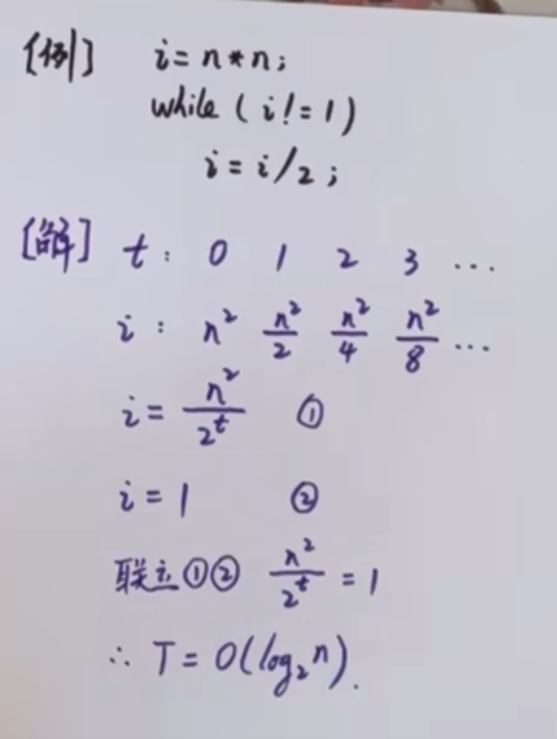 [例] i=n*n;
while(i!=1)
i=i/2;
[解] t: 0 1 2 3 ...
i: n² n²/2 n²/4 n²/8 ...
i=n²/2^t ①
i=1 ②
联立①② n²/2^t=1
∴ T=O(log₂n).